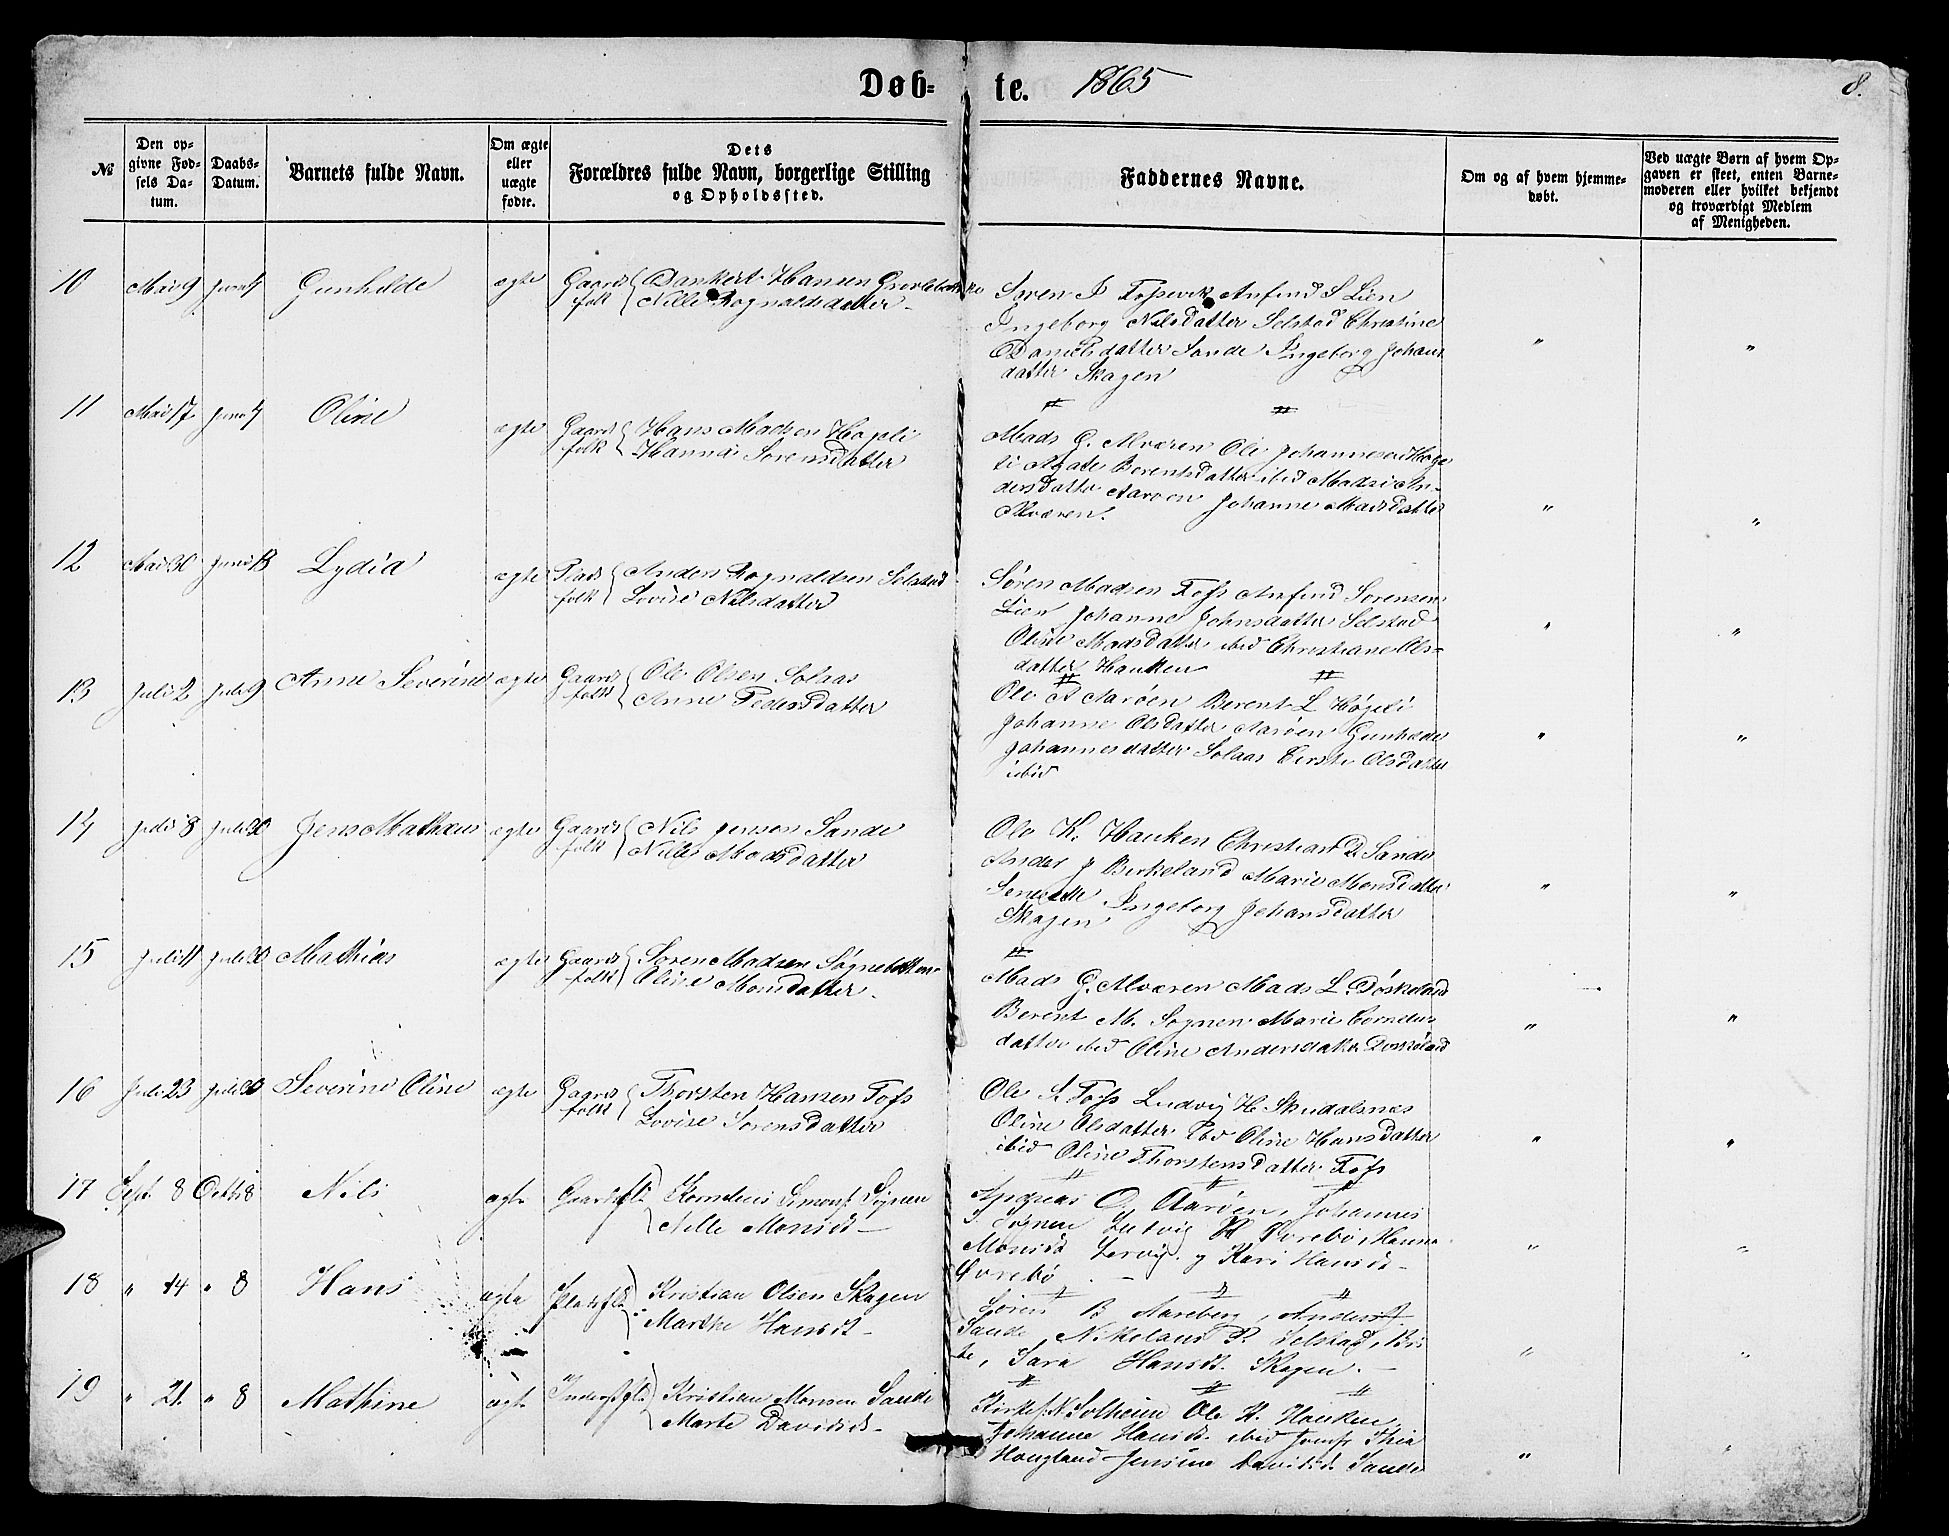 Døb-te. 1865
8.
№
Den op-
givne Fød-
sels Da-
tum.
Daabs-
Datum.
Barnets fulde Navn.
Om ægte
eller
uægte
fødte.
Dets
Forældres fulde Navn, borgerlige Stilling
og Opholdssted.
Faddernes Navne.
Om og af hvem hjemme-
døbt.
Ved uægte Børn af hvem Op-
gaven er skeet, enten Barne-
moderen eller hvilket bekjendt
og troværdigt Medlem
af Menigheden.
10 Mai 9 Juni 4 Gunhilde ægte Gaard folk Dankert Hansen
Nille Rognaldsdatter
Søren Anfind S Lien
Ingeborg Nilsdatter Selstad Christine
Danielsdatter Sande Ingeborg Johans
datter Skagen
" "
11 Mai 17 Juni 4 Oline ægte Gaard folk Hans Madsen Høgeli
Hanna Sørensdatter
Mads G. Alværen Ole Johannesen Høge
li Agate Berentsdatter ibid An-
dersdatter Aarøen Johanne Madsdatter
Alværen.
" "
12 Mai 30 Juni 18 Lydia ægte Plads folk Anders Rognaldsen Selstad
Lovise Nilsdatter
Søren Madsen Foss Anfind Sørensen
Lien Johanne Johnsdatter Selstad
Oline Madsdatter ibid Christiane Ols-
datter Hauken
" "
13 Juli 2 Juli 9 Anne Severine ægte Gaard folk Ole Olsen Solaas
Anne Pedersdatter
Ole A Aarøen Berent L Høgeli
Johanne Olsdatter Aarøen Gunhilde
Johannesdatter Solaas Olsdatter
ibid
" "
14 Juli 8 Juli 30 Jens Mathæus ægte Gaard folk Nils Jensen Sande
Nille Madsdatter
Ole K. Hauken Christian D. Sande
Anders J Birkeland Marie Monsdatter
Ingeborg Johansdatter
Skagen
" "
15 Juli 11 Juli 30 Mathias ægte Gaard folk Søren Madsen Sognebotten
Oline Monsdatter.
Mads G. Alværen Mads L. Døskeland
Berent M. Sognen Marie Cornelius
datter ibid Oline Andersdatter Døskeland
" "
16 Juli 23 Juli 30 Severine Oline ægte Gaard folk Thorsten Hansen Foss
Lovise Sørensdatter
Ole S. Foss Ludvig H. Skudalsnes
Oline Olsdatter ibid Oline Hansdatter
ibid Oline Thorstensdatter Foss
" "
17 Sept. 8 Octb 8 Nils ægte Gaardsflk Kornelius Simons. Sognen
Nille Monsd.
Andreas O. Aarøen, Johannes
Sognen Ludvig H Øvrebø, Hanna
Monsd. Lervig og Kari Hansd.
Øvrebø
" "
18 " 14 " 8 Hans ægte Pladsflk Kristian Olsen Skagen
Marthe Hansd.
Søren B Aareberg, Anders J.
Sande, Nikolaus P. Selstad,
Sara Hansd. Skagen.
" "
19 " 21. " 8 Mathine ægte Inderstflk Kristian Monsen Sande
Marte Davidsd.
Kirkes. N. Solheim Ole K. Hauken,
Johanne Hansd. ibid Jomfr Thea
Hougland Jensine Davidsd. Sande
" "